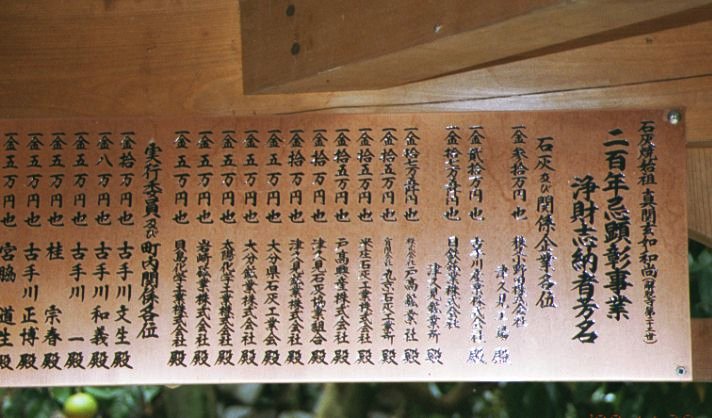 石灰焼始祖・真関玄如和尚
二百年忌顕彰事業
浄財志納者芳名
石灰及び関係企業各位
一金参拾万円也
津久見工場 殿
一金貮拾万円也 殿
一金拾万円也
津久見鉱業所 殿
一金拾万円也 株式会社戸高鉱業社 殿
一金拾五万円也 殿
一金拾五万円也 米庄石灰工業株式会社 殿
一金拾五万円也 戸高興産株式会社 殿
一金拾万円也 津久見石灰協業組合 殿
一金拾万円也 津久見産業株式会社 殿
一金五万円也 大分県石灰工業会 殿
一金五万円也 大分鉱業株式会社 殿
一金五万円也 太陽化学工業株式会社 殿
一金五万円也 岩崎砿業株式会社 殿
一金五万円也 貝島化学工業株式会社 殿
実行委員及び町内関係各位
一金拾万円也 古手川文生殿
一金八万円也 古手川和義殿
一金五万円也 古手川一殿
一金五万円也 桂崇春殿
一金五万円也 古手川正博殿
一金五万円也 宮脇道生殿